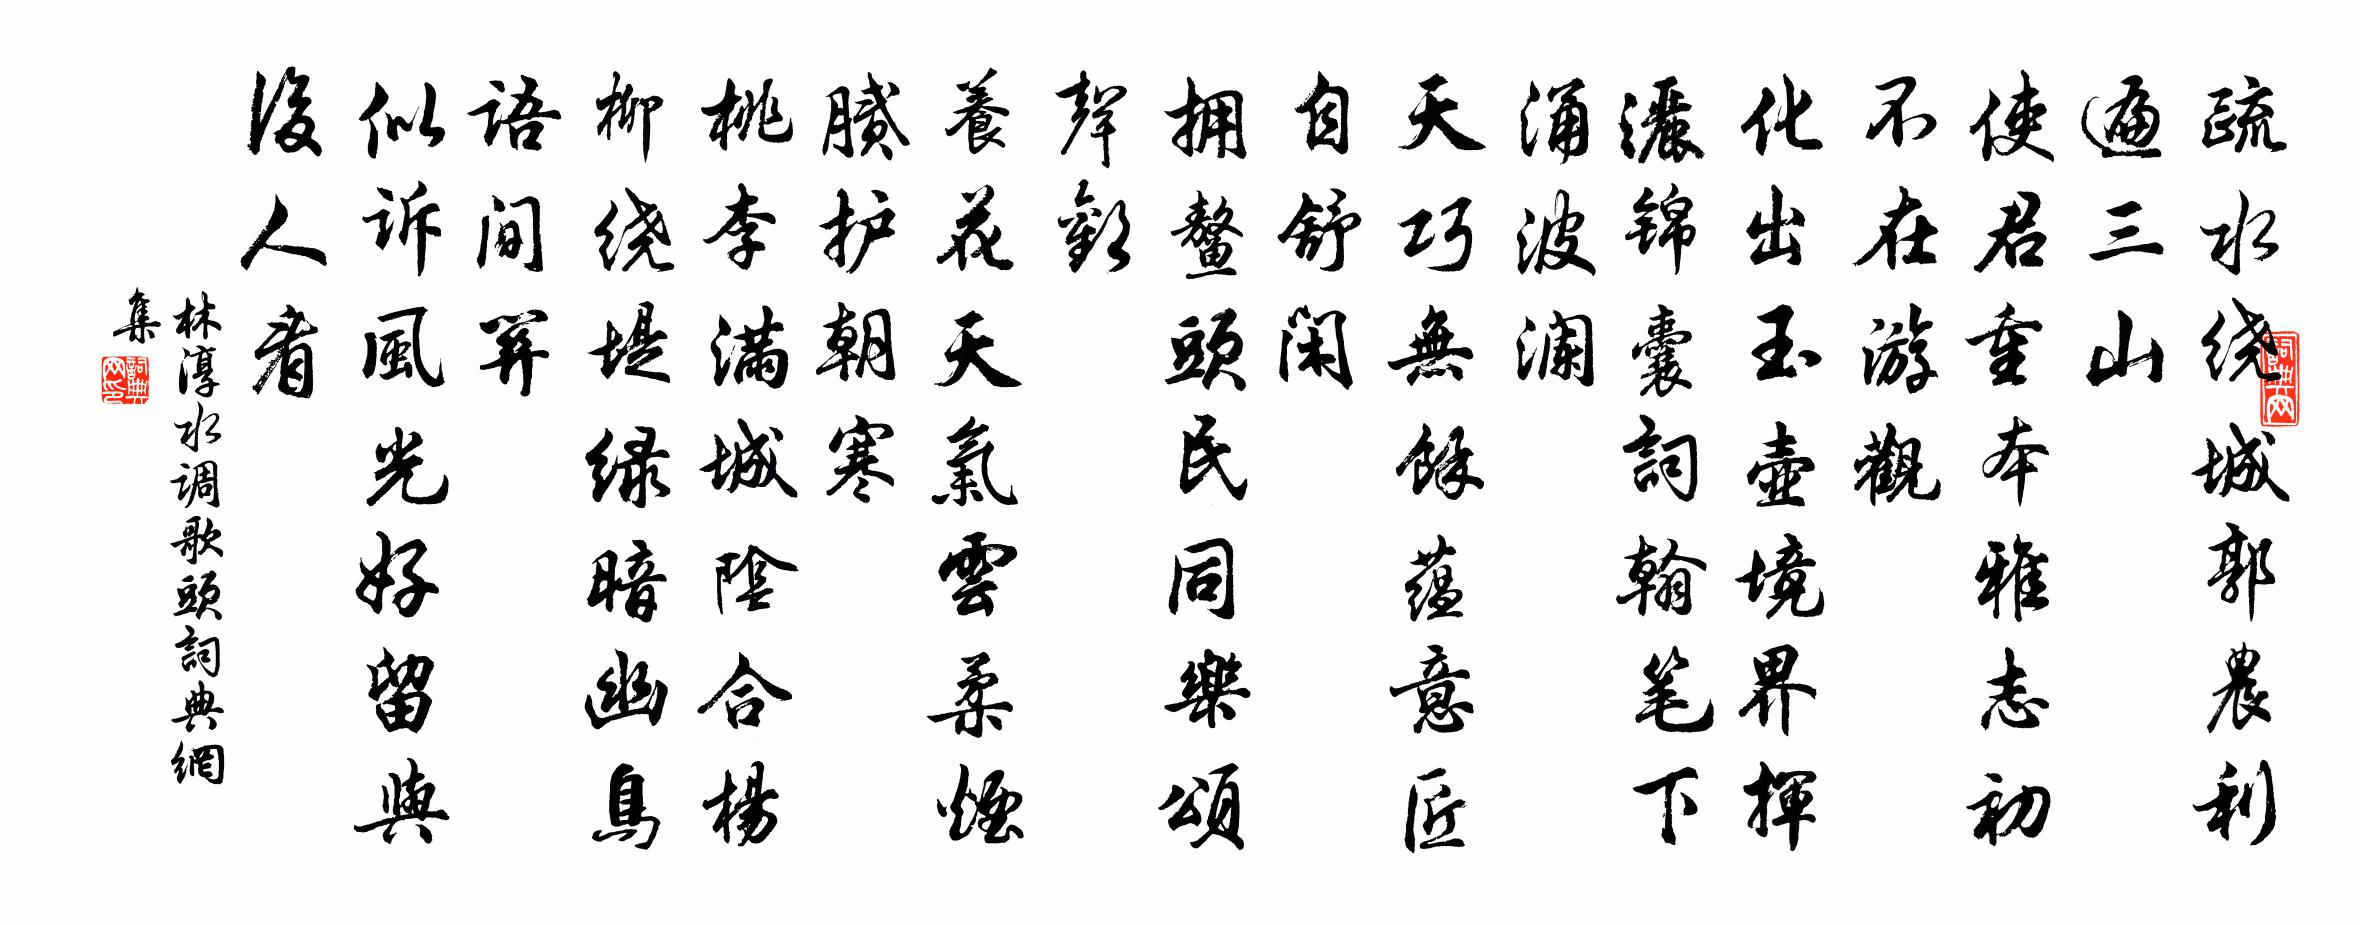 疏水绕城郭農利
遍三山
使君重本雅志初
不在游觀
化出玉壺境界揮
灑锦囊詞翰笔下
涌波澜
天巧無餘蕴意匠
自舒闲
拥鳌頭民同樂頌
聲歡
養花天氣雲柔煙
膩护朝寒
桃李满城陰合楊
柳绕堤绿暗幽鳥
語间関
似诉風光好留與
後人看
林淳水调歌頭詞典網
集
詞典网
詞典网印